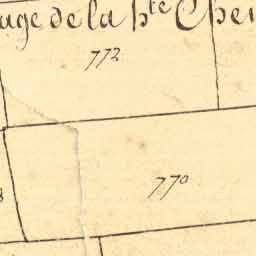 uage de la pte Chem
772
770
8